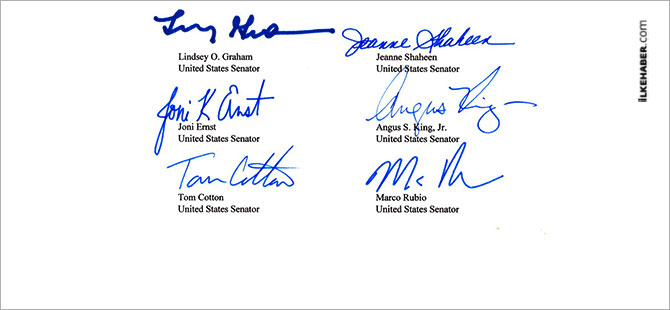 Lindsey O. Graham
United States Senator
Jeanne Shaheen
Jeanne Shaheen
United States Senator
Joni K Ernst
Joni Ernst
United States Senator
Angus King
Angus S. King, Jr.
United States Senator
Tom Cotton
Tom Cotton
United States Senator
Marco Rubio
United States Senator
iLKEHABER.com